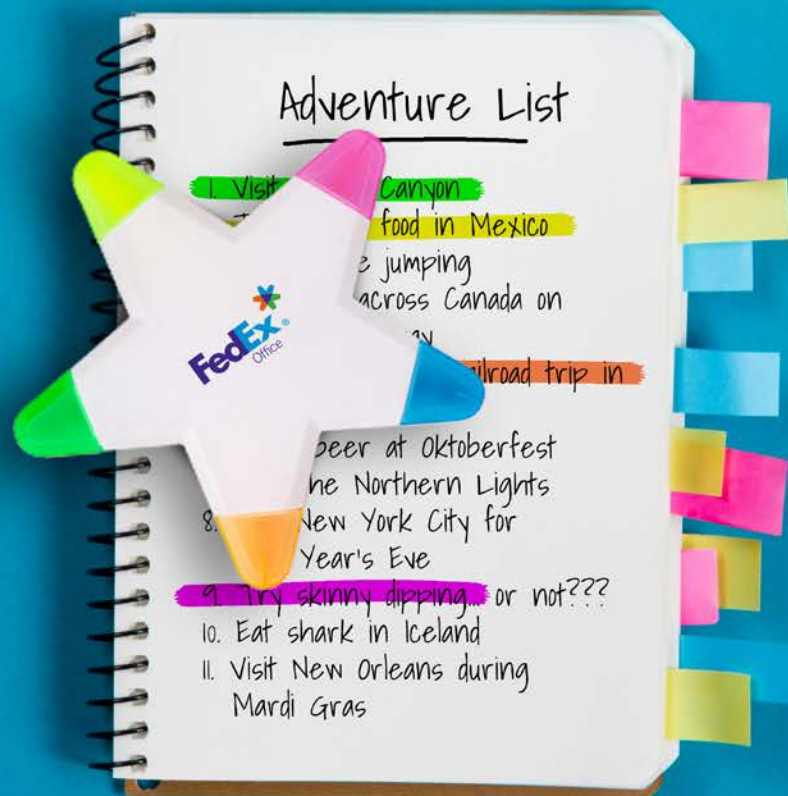 Adventure List
1. Visit Canyon
food in Mexico
jumping
across Canada on
road trip in
at Oktoberfest
the Northern Lights
8. New York City for
Year's Eve
9. Try skinny dipping... or not???
10. Eat shark in Iceland
11. Visit New Orleans during
Mardi Gras
FedEx®
Office